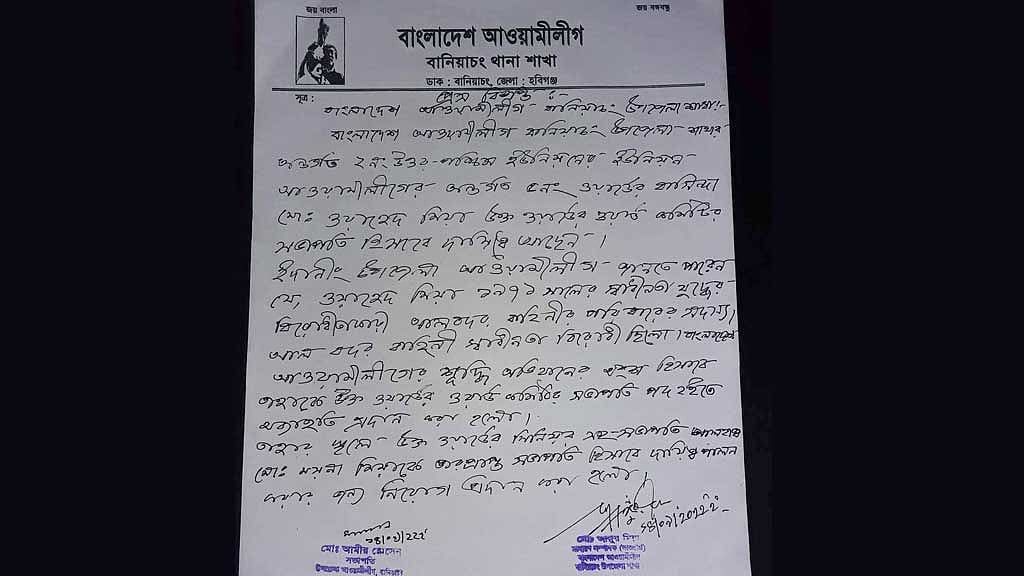 জয় বাংলা
জয় বঙ্গবন্ধু
বাংলাদেশ আওয়ামীলীগ
বানিয়াচং থানা শাখা
ডাক : বানিয়াচং, জেলা : হবিগঞ্জ
সূত্র :
প্রেস বিজ্ঞপ্তি :-
বাংলাদেশ আওয়ামীলীগ বানিয়াচং উপজেলা শাখা:-
বাংলাদেশ আওয়ামীলীগ বানিয়াচং উপজেলা শাখার
অন্তর্গত ২নং উত্তর-পশ্চিম ইউনিয়নের ইউনিয়ন
আওয়ামীলীগের অন্তর্গত ৫নং ওয়ার্ডের বাসিন্দা
মোঃ ওয়াহেদ মিয়া উক্ত ওয়ার্ডের ওয়ার্ড কমিটির
সভাপতি হিসাবে দায়িত্বে আছেন।
ইদানীং উপজেলা আওয়ামীলীগ জানতে পারেন
যে, ওয়াহেদ মিয়া ১৯৭১ সালের স্বাধীনতা যুদ্ধের
বিরোধীতাকারী আলবদর বাহিনীর পরিবারের সদস্য।
আল বদর বাহিনী স্বাধীনতা বিরোধী ছিলো। বাংলাদেশ
আওয়ামীলীগের শুদ্ধি অভিযানের অংশ হিসাবে
তাহাকে উক্ত ওয়ার্ডের ওয়ার্ড কমিটির সভাপতি পদ হইতে
অব্যাহতি প্রদান করা হলো।
তাহার স্থলে উক্ত ওয়ার্ডের সিনিয়র সহ-সভাপতি
মোঃ ময়না মিয়াকে ভারপ্রাপ্ত সভাপতি হিসাবে দায়িত্ব পালন
করার জন্য নিয়োগ প্রদান করা হলো।
মোঃ আমীর হোসেন
সভাপতি
উপজেলা আওয়ামীলীগ, বানিয়াচং
সাধারণ সম্পাদক (ভারপ্রাপ্ত)
বাংলাদেশ আওয়ামীলীগ
বানিয়াচং উপজেলা শাখা